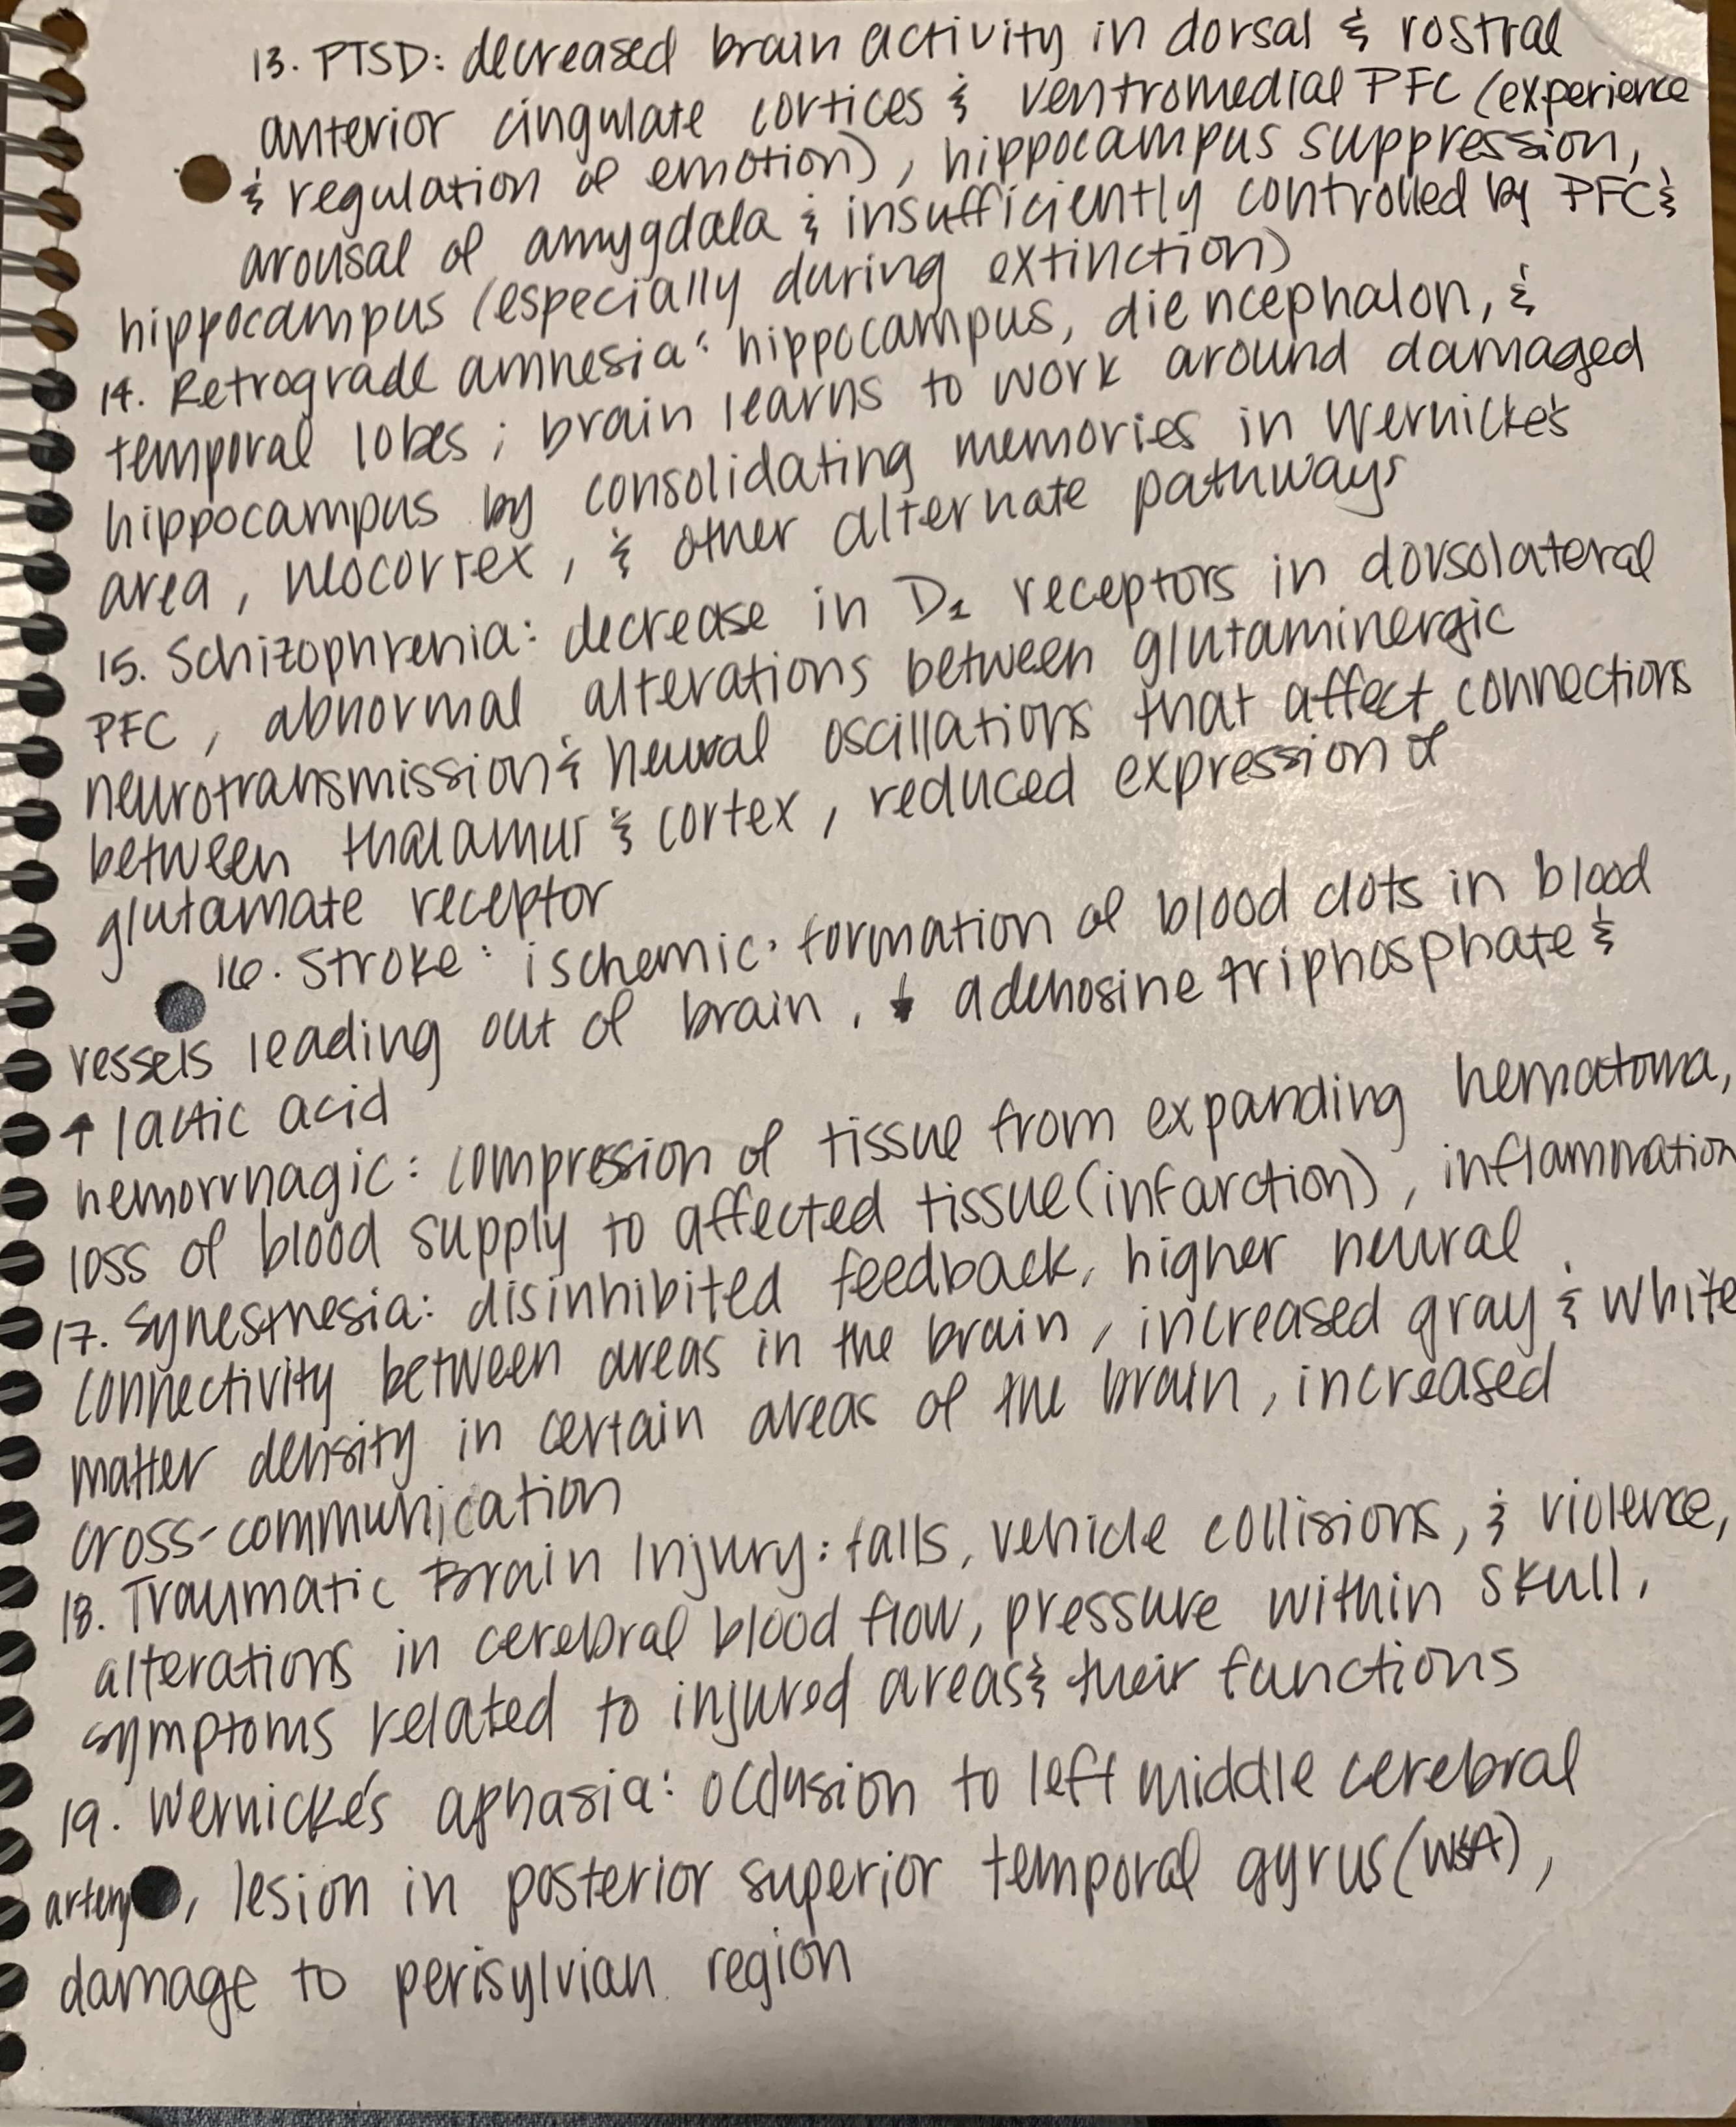 13. PTSD: decreased brain activity in dorsal & rostral
anterior cingulate cortices & ventromedial PFC (experience
& regulation of emotion), hippocampus suppression,
arousal of amygdala & insufficiently controlled by PFC &
hippocampus (especially during extinction)
14. Retrograde amnesia: hippocampus, diencephalon, &
temporal lobes; brain learns to work around damaged
hippocampus by consolidating memories in Wernicke's
area, neocortex, & other alternate pathways
15. Schizophrenia: decrease in D1 receptors in dorsolateral
PFC, abnormal alterations between glutaminergic
neurotransmission & neural oscillations that affect connections
between thalamus & cortex, reduced expression of
glutamate receptor
16. Stroke: ischemic: formation of blood clots in blood
vessels leading out of brain, ↓ adenosine triphosphate &
↑ lactic acid
hemorrhagic: compression of tissue from expanding hematoma,
loss of blood supply to affected tissue (infarction), inflammation
17. Synesthesia: disinhibited feedback, higher neural
connectivity between areas in the brain, increased gray & white
matter density in certain areas of the brain, increased
cross-communication
18. Traumatic Brain Injury: falls, vehicle collisions, & violence,
alterations in cerebral blood flow, pressure within skull,
symptoms related to injured areas & their functions
19. Wernicke's aphasia: occlusion to left middle cerebral
artery, lesion in posterior superior temporal gyrus (W'sA),
damage to perisylvian region